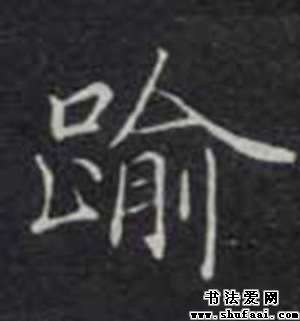 踰
书法爱网
www.shufaai.com